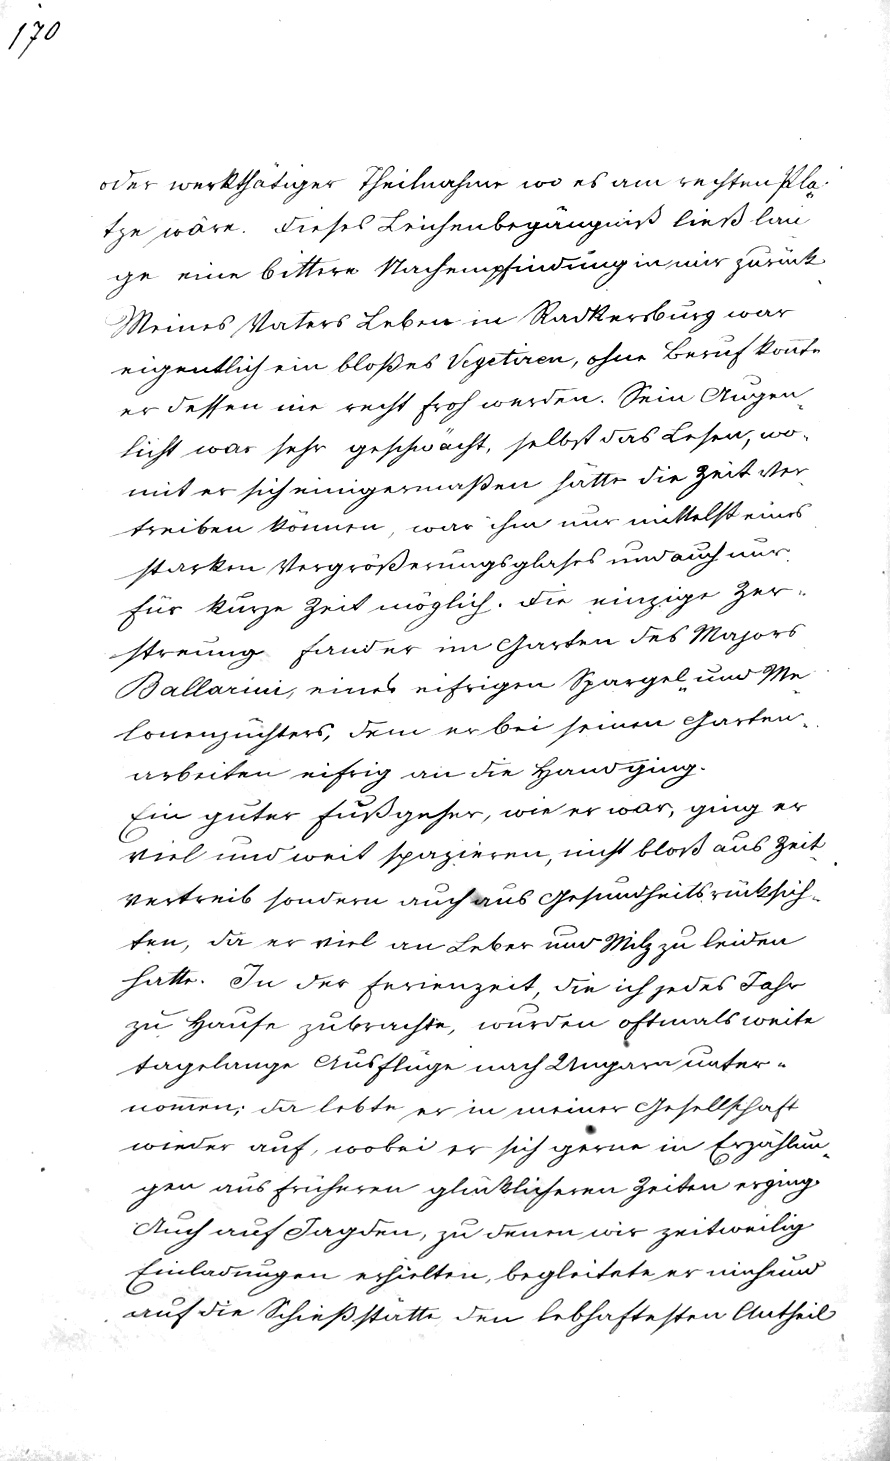 170
oder werkthätiger Theilnahme wo es am rechten Pla-
tze wäre. Dieses Leichenbegängniß ließ lan
ge eine bittere Nachempfindung in mir zurück.
Meines Vaters Leben in Radkersburg war
eigentlich ein bloßes Vegetiren, ohne Beruf kon̄te
er dessen nie recht froh werden. Sein Augen-
licht war sehr geschwächt, selbst das Lesen, wo-
mit er sich einigermaßen hätte die Zeit ver-
treiben können, war ihm nur mittelst eines
starken Vergrößerungsglases und auch nur
für kurze Zeit möglich. Die einzige Zer-
streuung fand er im Garten des Majors
Ballarini, eines eifrigen Spargel- und Me-
lonenzüchters, dem er bei seinen Garten-
arbeiten eifrig an die Hand ging.
Ein guter Fußgeher, wie er war, ging er
viel und weit spazieren, nicht bloß aus Zeit-
vertreib sondern auch aus Gesundheitsrücksich-
ten, da er viel an Leber und Milz zu leiden
hatte. In der Ferienzeit, die ich jedes Jahr
zu Hause zubrachte, wurden oftmals weite
tagelange Ausflüge nach Ungarn unter-
nom̄en; da lebte er in meiner Gesellschaft
wieder auf, wobei er sich gerne in Erzählun-
gen aus früheren glücklicheren Zeiten erging.
Auch auf Jagden, zu denen wir zeitweilig
Einladungen erhielten, begleitete er mich und
auf die Schießstätte, den lebhaftesten Antheil